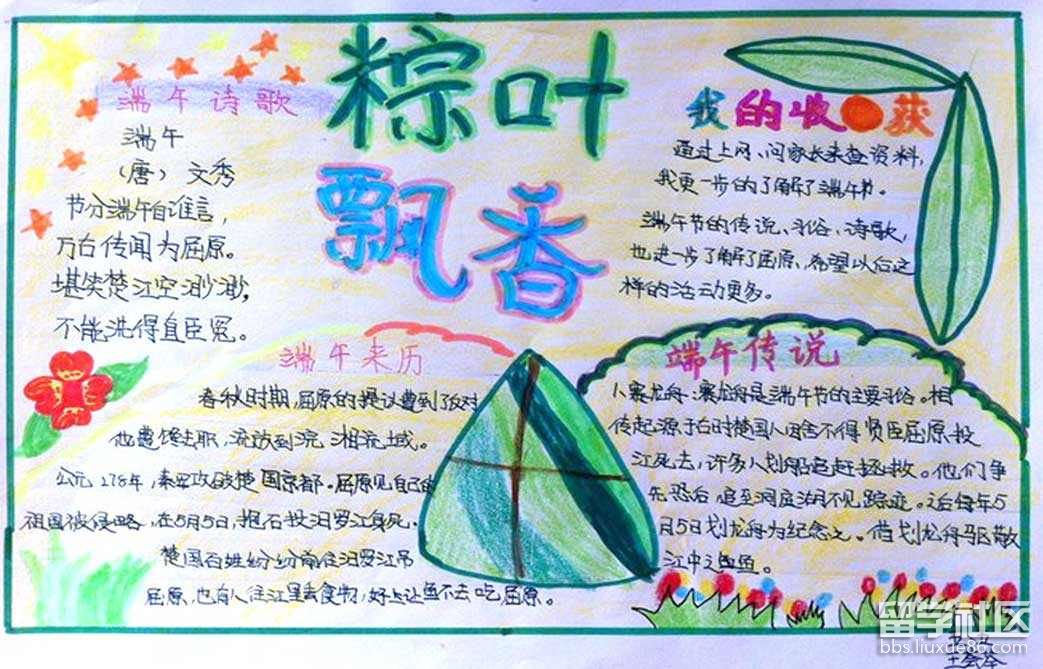 粽叶
飘香
端午诗歌
端午
(唐) 文秀
节分端午自谁言,
万古传闻为屈原。
堪笑楚江空渺渺,
不能洗得直臣冤。
我的收获
通过上网、问家长来查资料,
我更一步的了解了端午节。
端午节的传说、习俗、诗歌,
也进一步了解了屈原、希望以后这
样的活动更多。
端午来历
春秋时期,屈原的提议遭到了反对
他遭馋去职,流放到沅、湘流域。
公元278年,秦军攻破楚国京都。屈原见自己的
祖国被侵略,在5月5日,抱石投汨罗江身死,
楚国百姓纷纷前往汨罗江吊
屈原,也有人往江里丢食物,好让鱼不去吃屈原。
端午传说
赛龙舟:赛龙舟是端午节的主要习俗。相
传起源于古时楚国人因舍不得贤臣屈原投
江死去,许多人划船追赶拯救。他们争
先恐后,追至洞庭湖不见踪迹。之后每年5
月5日划龙舟为纪念之。借划龙舟驱散
江中之鱼。
留学社区
bbs.liuxue86.com